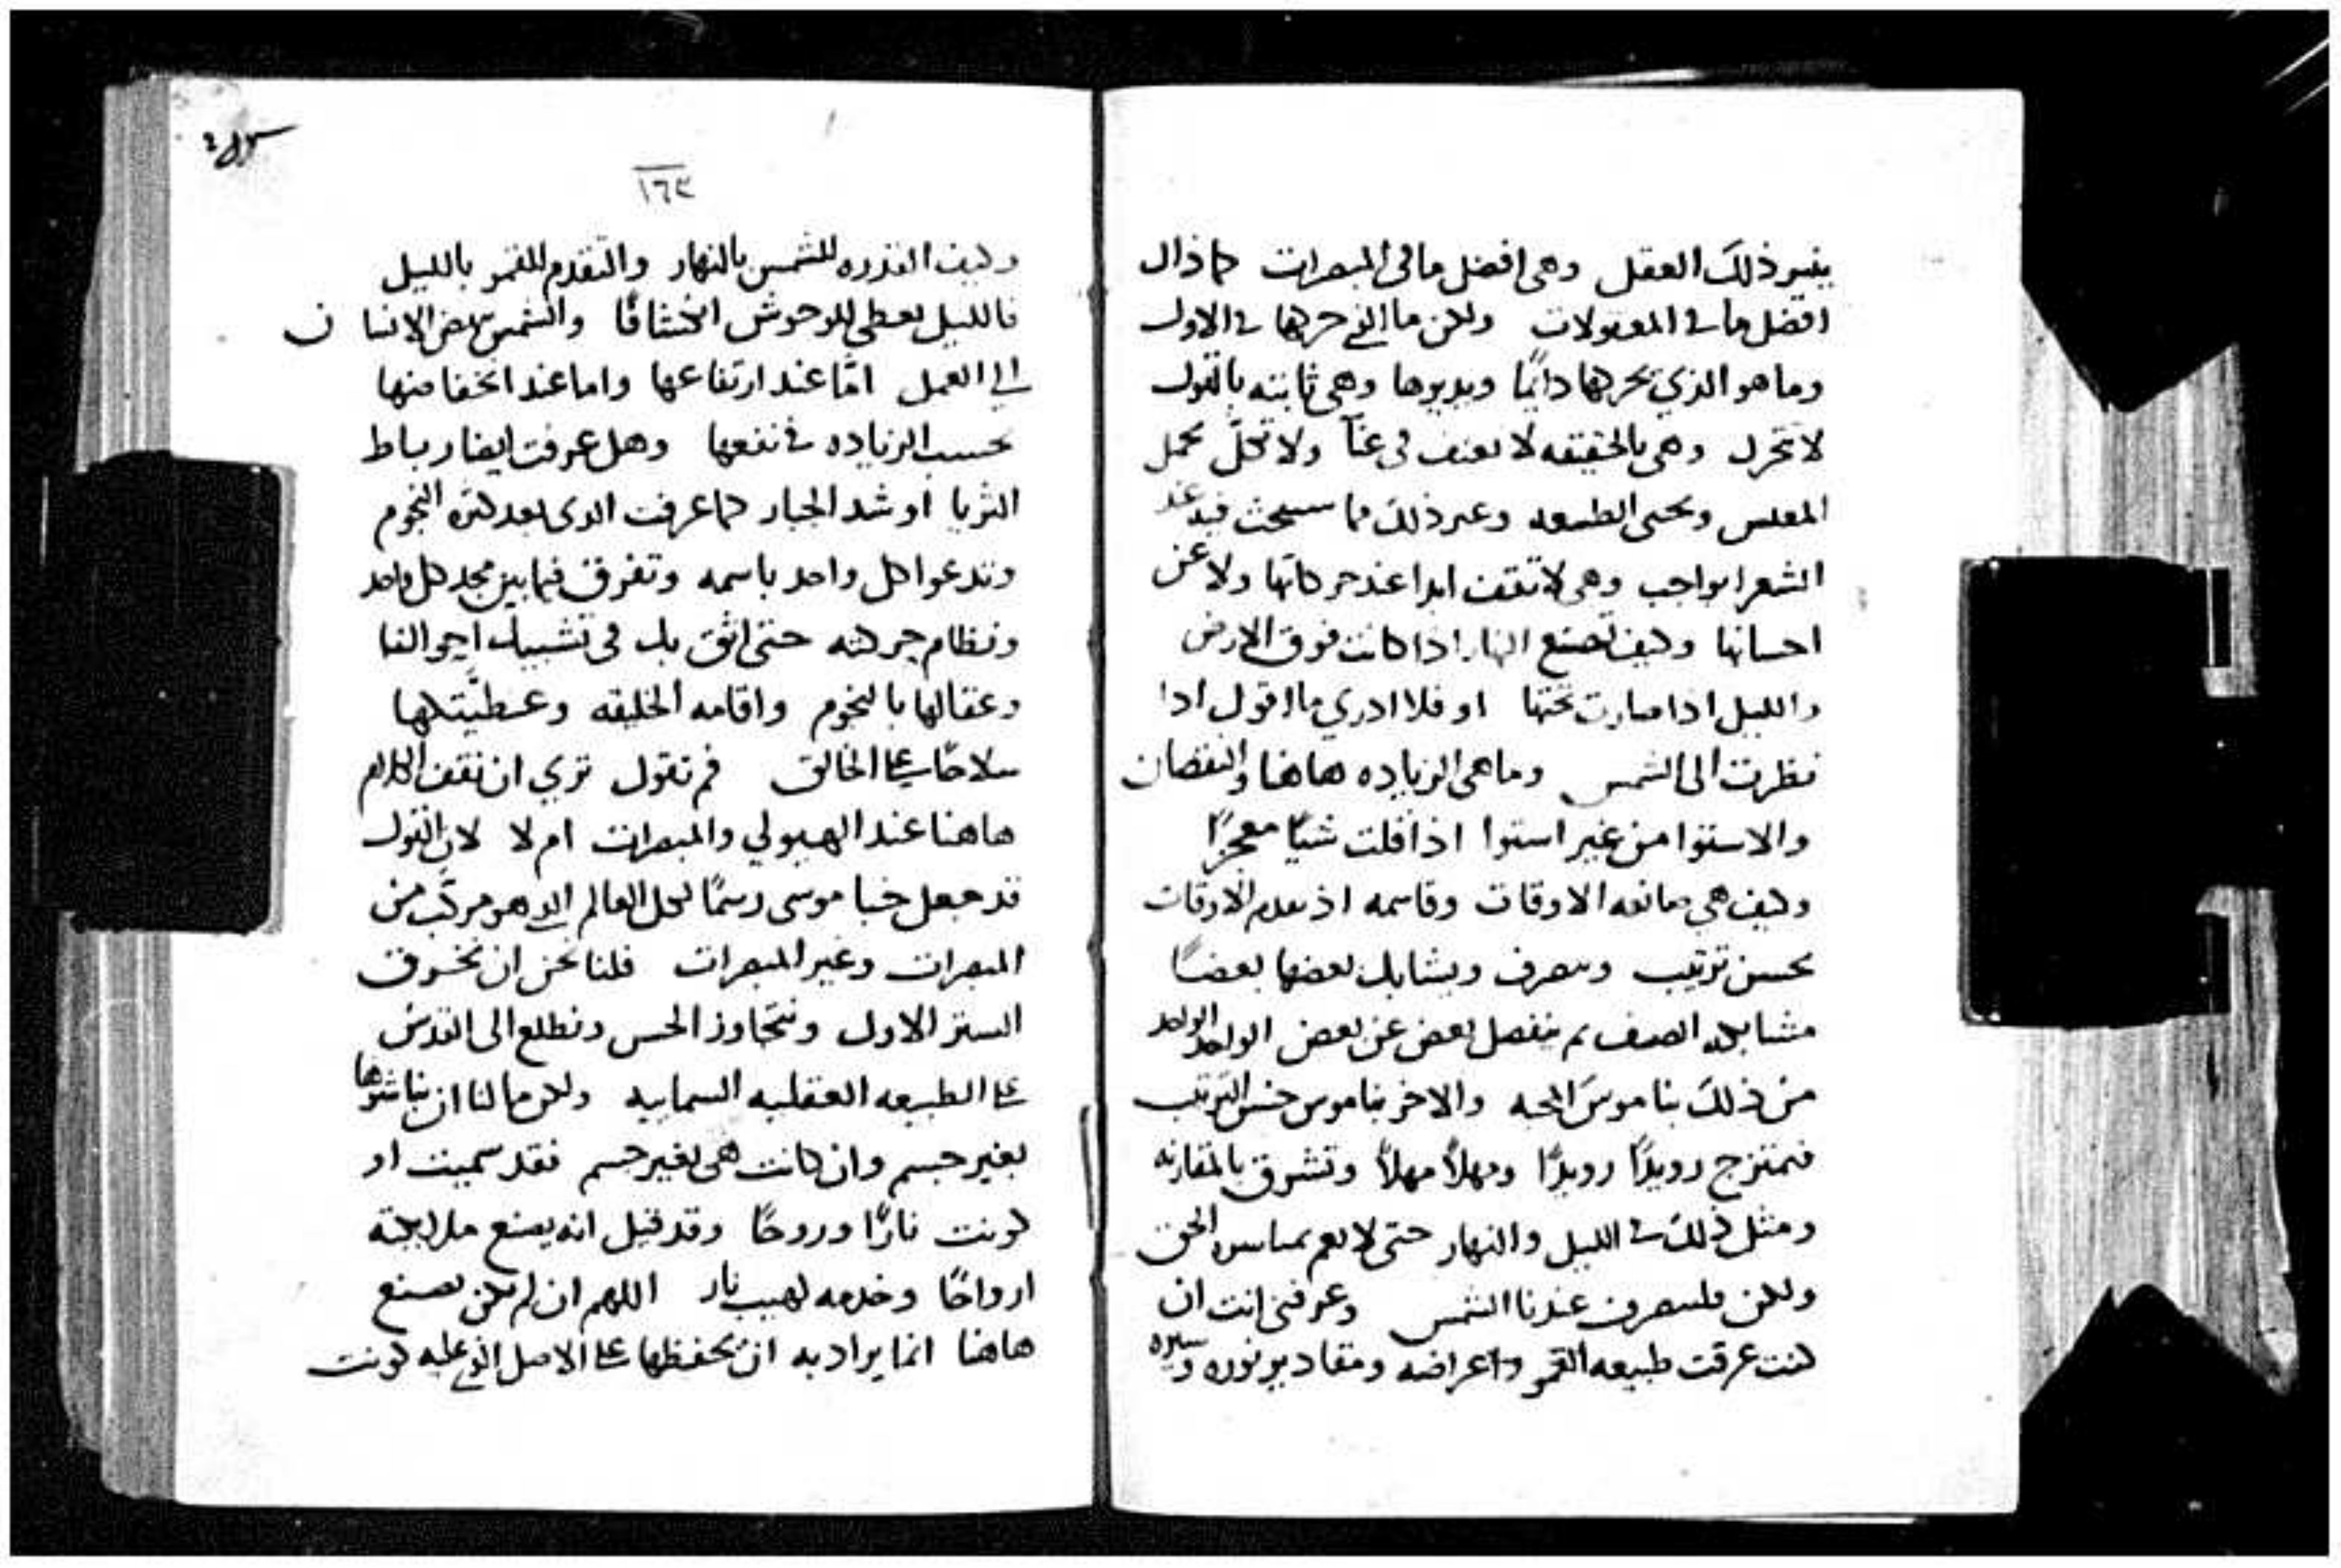 ينير ذلك العقل وهى افضل ما فى المبصرات كما ذاك
افضل ما فى المعقولات ولكن ما الذي حركها في الاول
وما هو الذي يحركها دايمًا ويديرها وهى ثابته بالقول
لا تتحرك وهى بالحقيقه لا تقف فى عنآ ولا تكلّ
ويحيى الطبيعه وغير ذلك مما سبحت فيه عند
الشعرا بواجب وهى لا تقف ابدا عند حركاتها ولا عن
احسانها وكيف تصنع النهار اذا كانت فوق الارض
والليل اذا صارت تحتها او فلا ادري ما اقول اذا
نظرت الى الشمس وما هى الزياده هاهنا والنقصان
والاستوا من غير استوا اذا قلت شيًا معجزًا
وكيف هى صانعه الاوقات وقاسمه اذ تقدم الاوقات
بحسن ترتيب وتنصرف ويشابك بعضها بعضًا
مشابكه الصف ثم ينفصل بعض عن بعض الواحد الواحد
من ذلك بناموس المحبه والاخر بناموس حسن الترتيب
فيمتزج رويدًا رويدًا ومهلاً مهلاً وتشرق بالمقارنه
ومثل ذلك في الليل والنهار حتى لا
ولكن فلتنصرف عندنا الشمس وعرفنى انت ان
كنت عرفت طبيعه القمر واعراضه ومقادير نوره وسيره
سر ٤
١٦٣
وكيف القدره للشمس بالنهار والتقدم للقمر بالليل
فالليل يعطى للوحوش انخشاقًا والشمس تنهض الانسان
الي العمل امّا عند ارتفاعها واما عند انخفاضها
بحسب الزياده في نفعها وهل عرفت ايضا رباط
الثريا او شد الجبار كما عرفت الذى يعد كثره النجوم
وتدعوا كل واحد باسمه وتفرق فيما بين مجد كل واحد
ونظام حركته حتى اثق بك فى تشبيك احوالنا
وعقالها بالنجوم واقامه الخليقه
سلاحًا على الخالق ثم نقول ترى ان نقف الكلام
هاهنا عند الهيولي والمبصرات ام لا لان القول
قد جعل خبا موسى رسمًا لكل العالم الذي هو مركّب من
المبصرات وغير المبصرات فلنا نحن ان نخرق
الستر الاول ونتجاوز الحس ونطلع الى القدس
على الطبيعه العقليه السماييه ولكن ما لنا ان نباشرها
بغير جسم وان كانت هى بغير جسم فقد سميت او
كونت نارًا وروحًا وقد قيل انه يصنع ملايكته
ارواحًا وخدمه لهيب نار اللهم ان لم تكن تصنع
هاهنا انما يراد به ان يحفظها على الاصل الذي عليه كونت